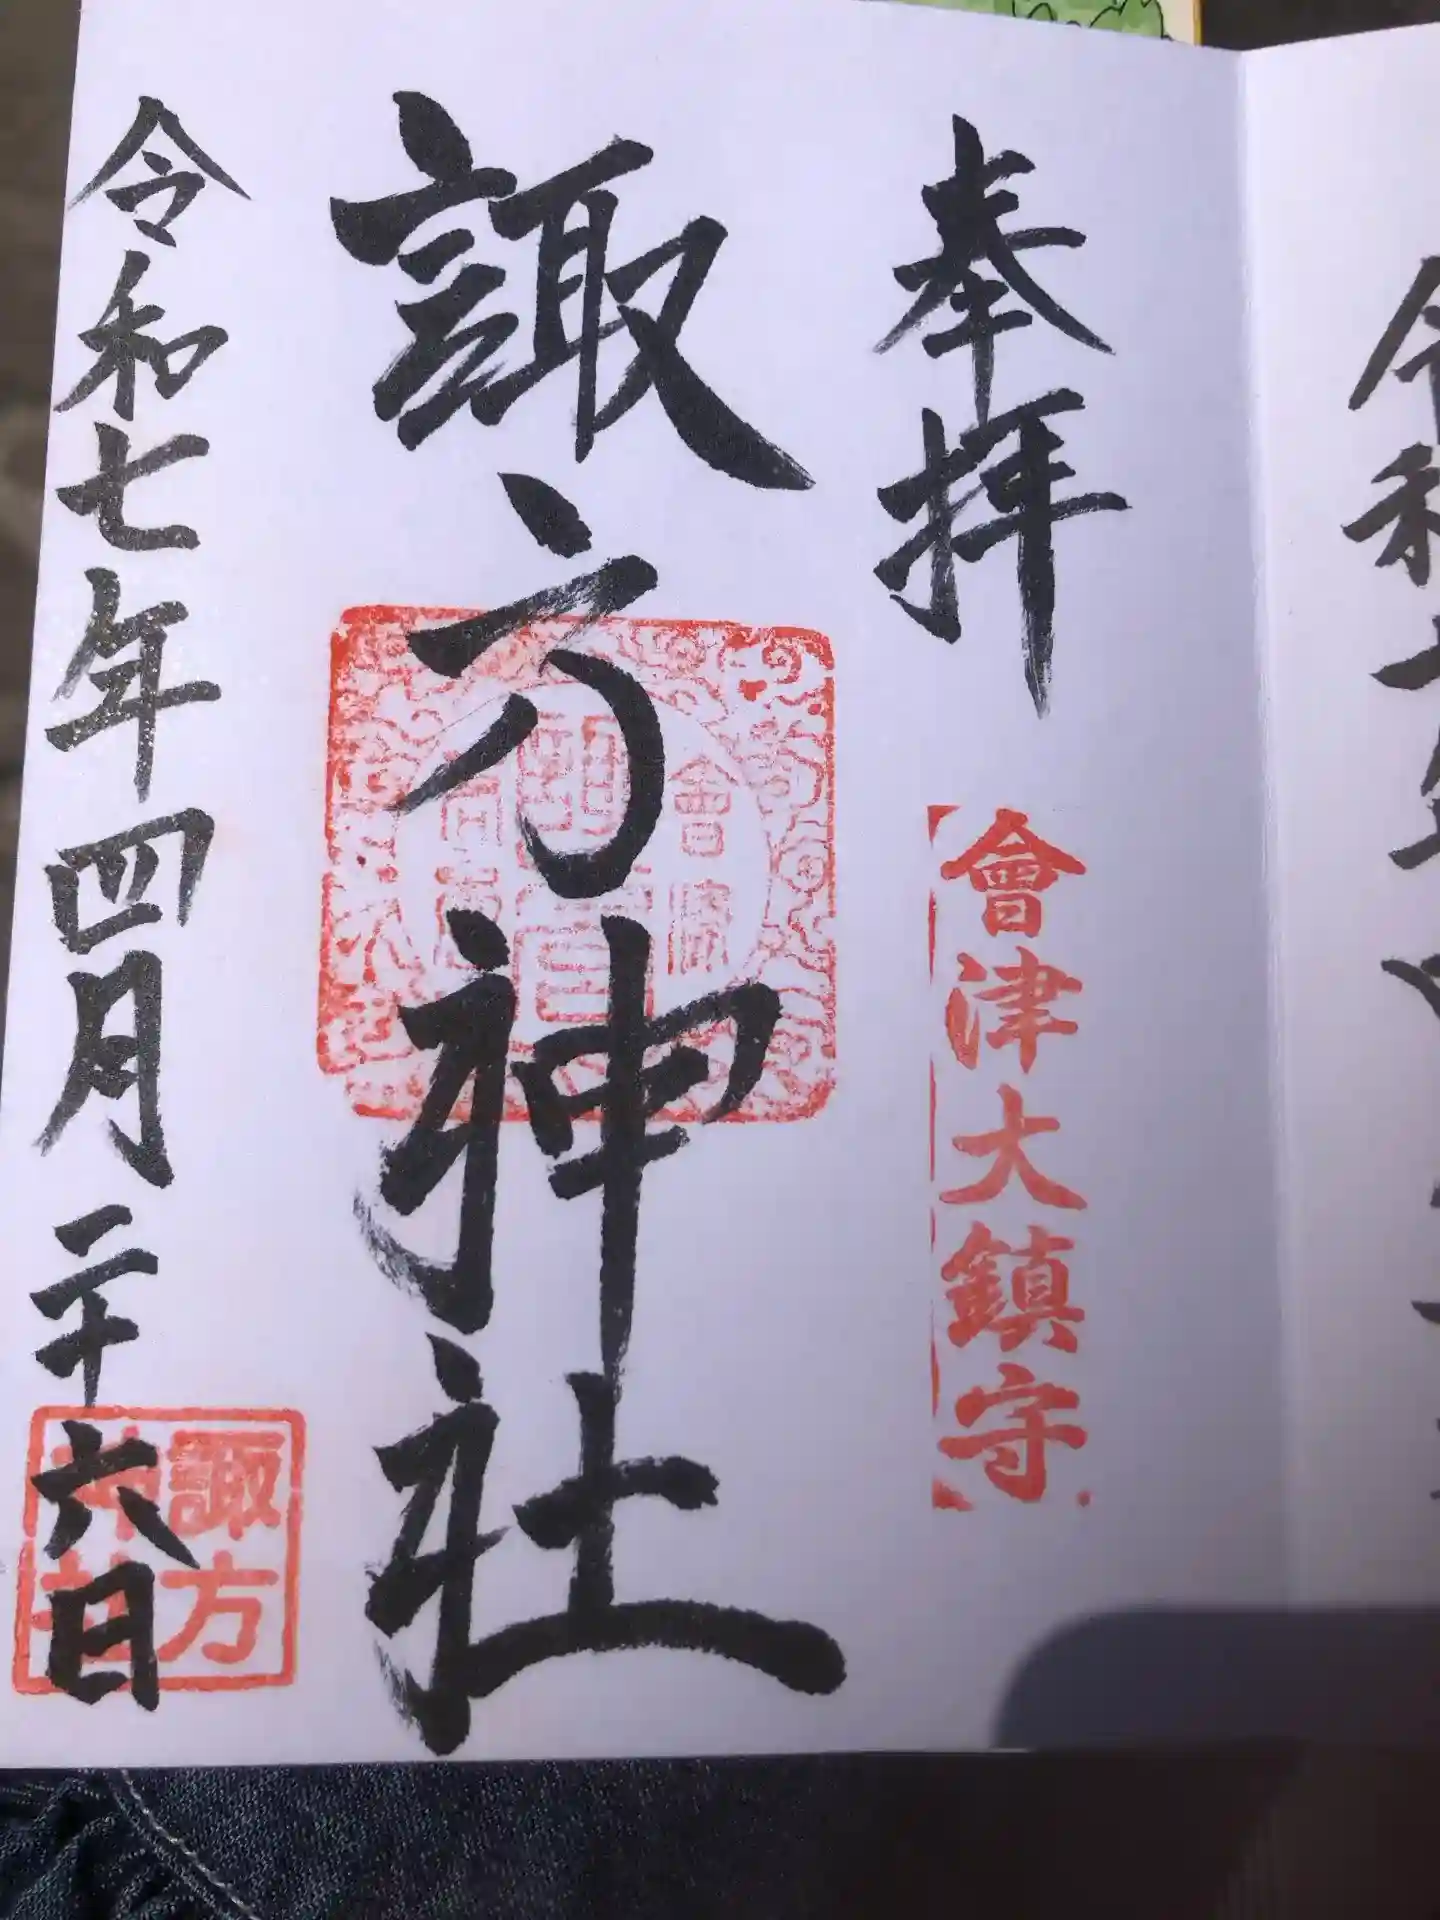 奉拝
會津大鎮守
諏方神社
令和七年四月二十六日
諏方
神社
令和七年四月二十